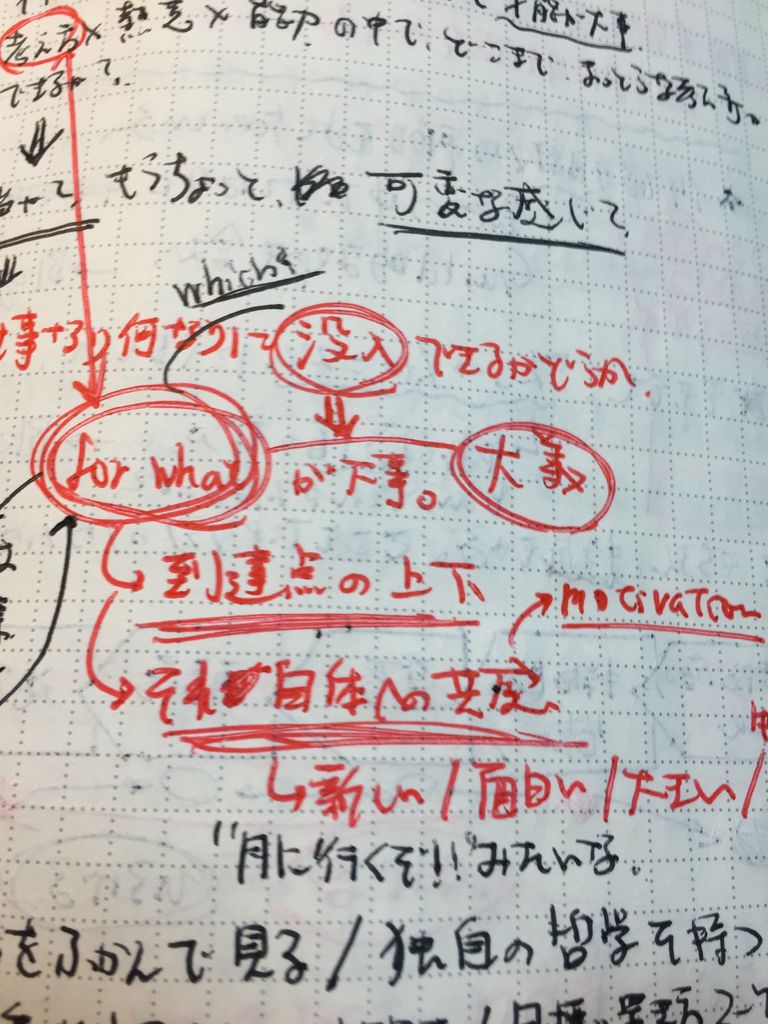 考え方×熱意×能力の中で、どこまで まっとうな考え方。
できるかで、
もうちょっと、可変な感じで
which?
事なり何なりに没入できるかどうか。
for what が大事。 大義
到達点の上下
motivation
それ自体への共感
新しい/面白い/大きい/
"月に行くぞ!!"みたいな。
をふかんで見る/独自の哲学を持つ